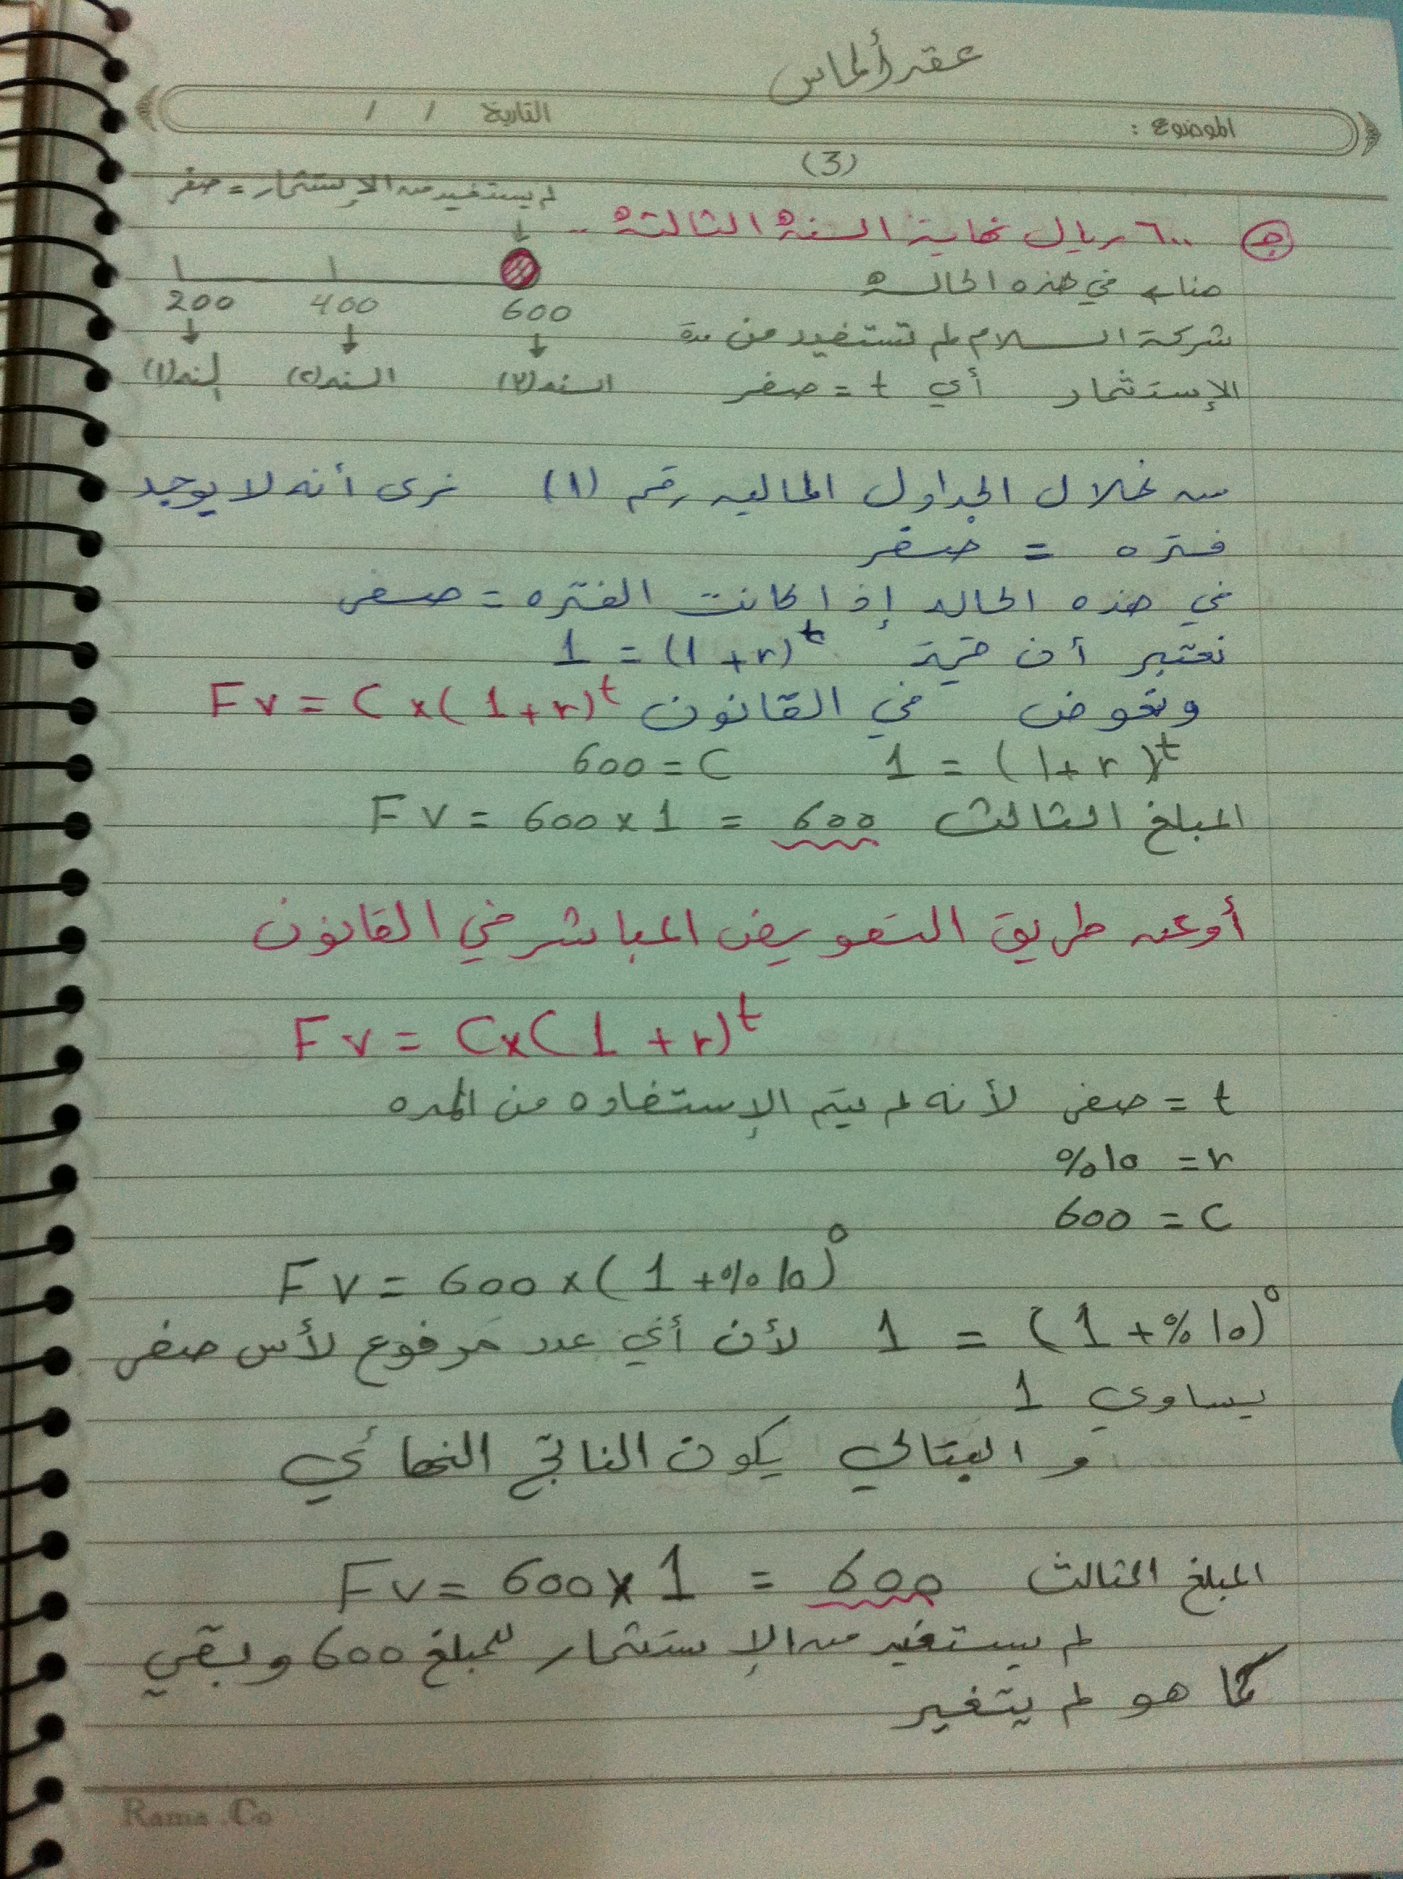 عقد ألماس
الموضوع : التاريخ / /
(3)
لم يستفيد من الإستثمار = صفر
ج ٦٠٠ ريال نهاية السنة الثالثة ..
هنا في هذه الحالة
200 400 600
شركة السلام لم تستفيد من مدة
السنه(١) السنه(٢) السنه(٣)
الإستثمار أي t = صفر
من خلال الجداول الماليه رقم (١) نرى أنه لا يوجد
فتره = صفر
في هذه الحاله إذا كانت الفتره = صفر
نعتبر أن قيمة 1 = (1+r)^t
ونعوض في القانون Fv = C×(1+r)^t
600 = C 1 = (1+r)^t
المبلغ الثالث FV = 600×1 = 600
أو عن طريق التعويض المباشر في القانون
Fv = C×(1+r)^t
t = صفر لأنه لم يتم الإستفاده من المده
%10 = r
600 = C
FV = 600×(1+%10)^0
1 = (1+%10)^0 لأن أي عدد مرفوع لأس صفر
يساوي 1
و البتالي يكون الناتج النهائي
المبلغ الثالث FV = 600×1 = 600
لم يستفيد من الإستثمار للمبلغ 600 وبقي
كما هو لم يتغير
Rama .Co